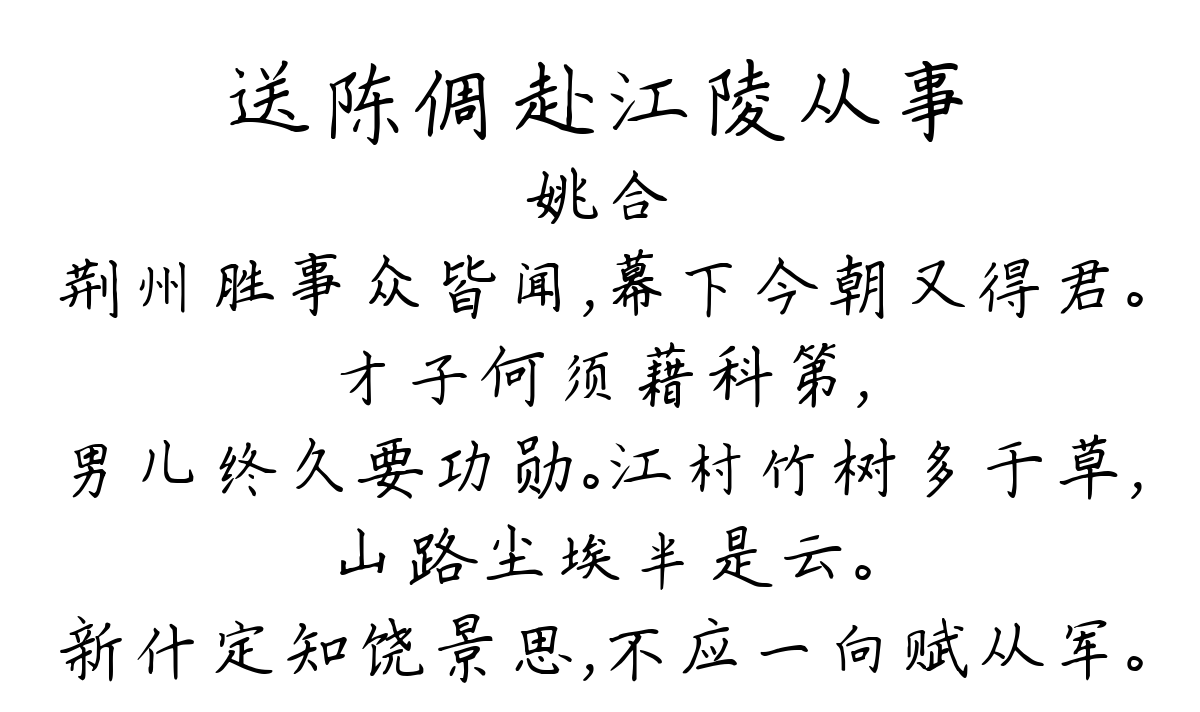 送陈倜赴江陵从事
姚合
荆州胜事众皆闻,幕下今朝又得君。
才子何须藉科第,
男儿终久要功勋。江村竹树多于草,
山路尘埃半是云。
新什定知饶景思,不应一向赋从军。